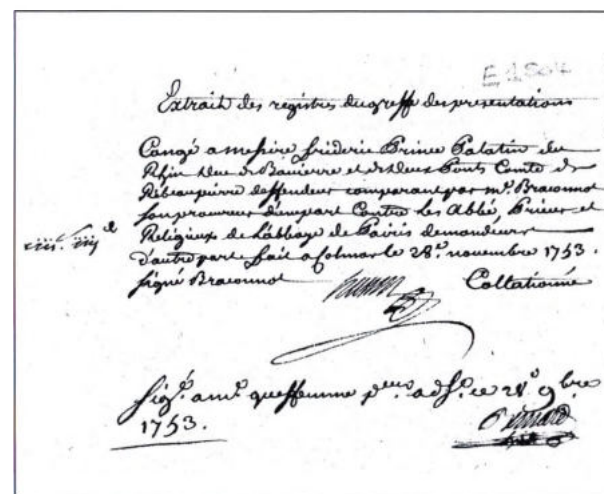 E 1504
Extrait des registres du greffe des presentations
Congé a messire frideric Prince Palatin du
Rhin Duc de Bavierre et des deux Ponts Comte de
Ribeaupierre deffendeur comparant par mᵉ. Braconnot
son procureur d'une part Contre les Abbé, Prieur et
Religieux de L'abbaye de Pairis demandeurs
d'autre part fait a Colmar le 28ᵉ. novembre 1753.
signé Braconnot Collationné
sigᵉ. a mᵉ. queffemme ce 28ᵉ 9bre
1753.